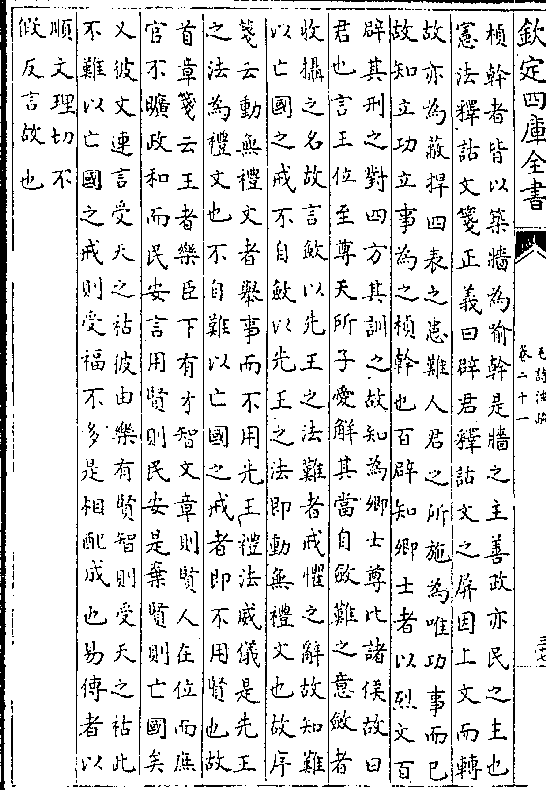 欽定四庫全書
毛詩注疏
卷二十一
三七
楨幹者皆以築牆為喻幹是牆之主善政亦民之主也
憲法釋詁文箋正義曰辟君釋詁文之屏因上文而轉
故亦為蔽捍四表之患難人君之所施為唯功事而已
故知立功立事為之楨幹也百辟知卿士者以烈文百
辟其刑之對四方其訓之故知為卿士尊比諸侯故曰
君也言王位至尊天所子愛解其當自斂難之意斂者
收攝之名故言斂以先王之法難者戒懼之辭故知難
以亡國之戒不自斂以先王之法即動無禮文也故序
箋云動無禮文者舉事而不用先王禮法威儀是先王
之法為禮文也不自難以亡國之戒者即不用賢也故
首章箋云王者樂臣下有才智文章則賢人在位而庶
官不曠政和而民安言用賢則民安是棄賢則亡國矣
又彼文連言受天之祜彼由樂有賢智則受天之祜此
不難以亡國之戒則受福不多是相配成也易傳者以
順文理切不
假反言故也